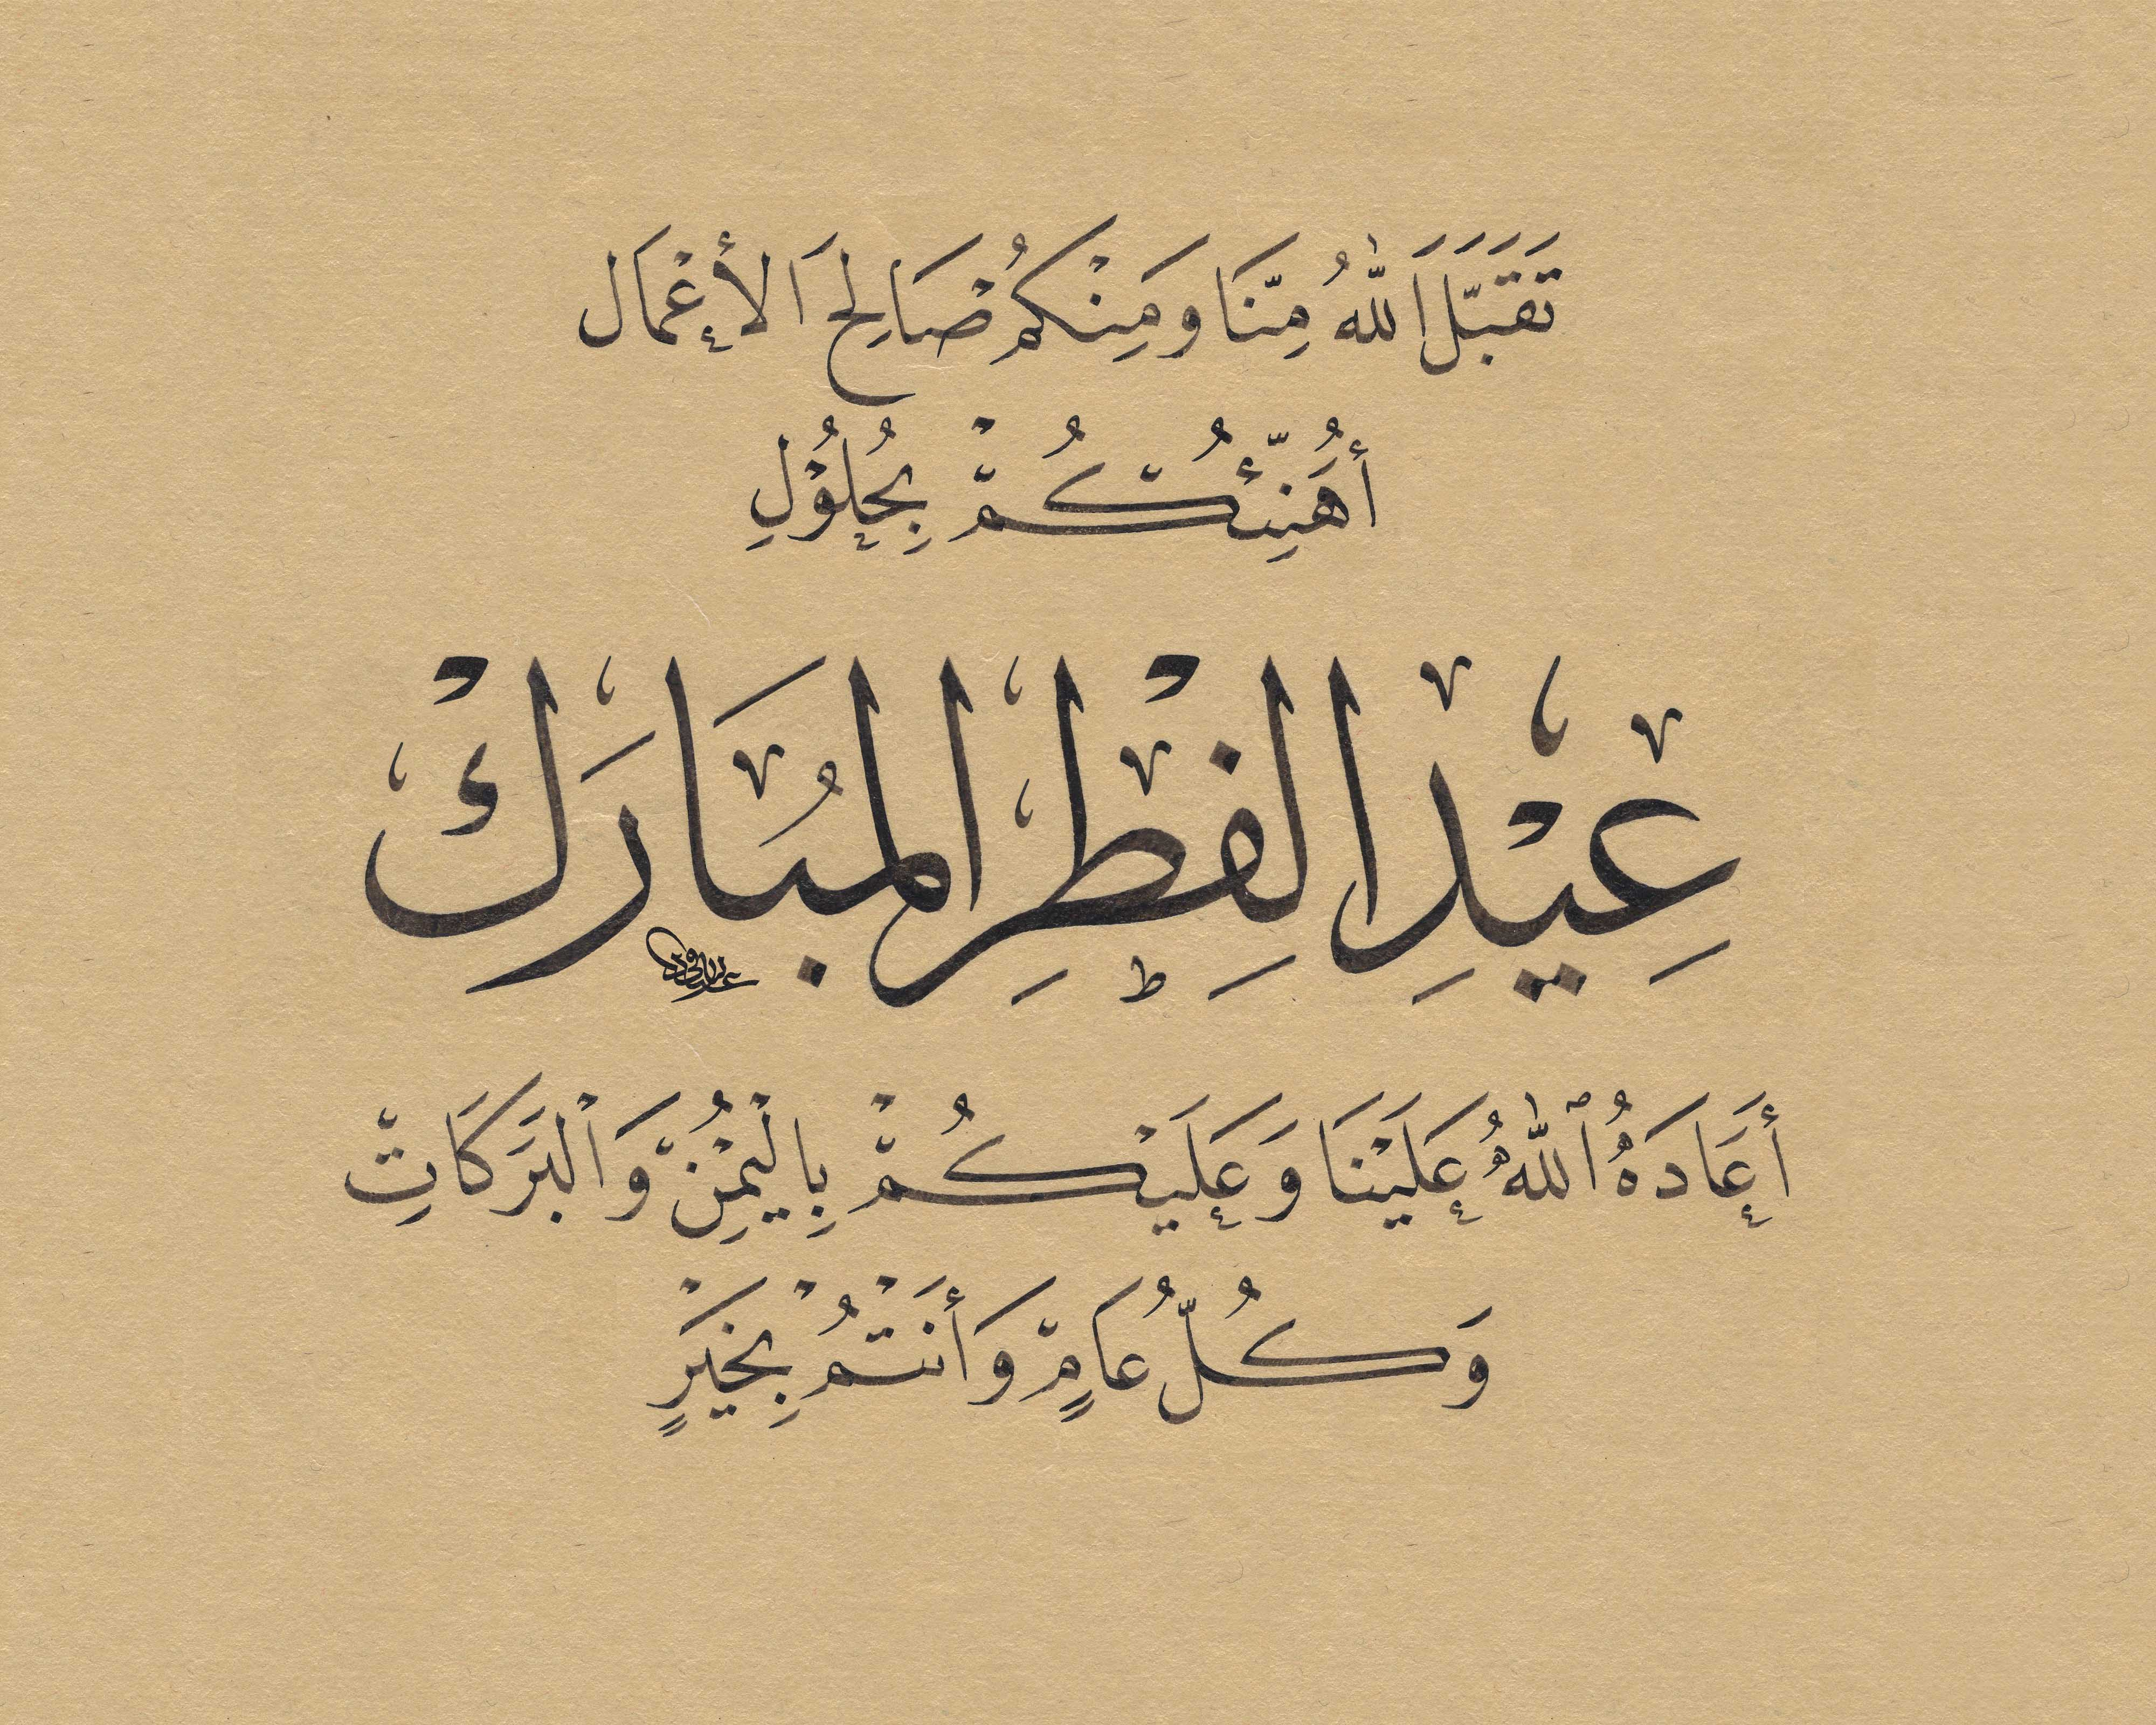 تَقَبَّلَ اللّٰهُ مِنَّا وَمِنْكُمْ صَالِحَ الأَعْمَال
أُهَنِّئُكُمْ بِحُلُوْلِ
عِيْدِ الفِطْرِ المُبَارَكْ
أَعَادَهُ ٱللّٰهُ عَلَيْنَا وَعَلَيْكُمْ بِالْيُمْنِ وَالْبَرَكَاتِ
وَكُلُّ عَامٍ وَأَنْتُمْ بِخَيْرٍ